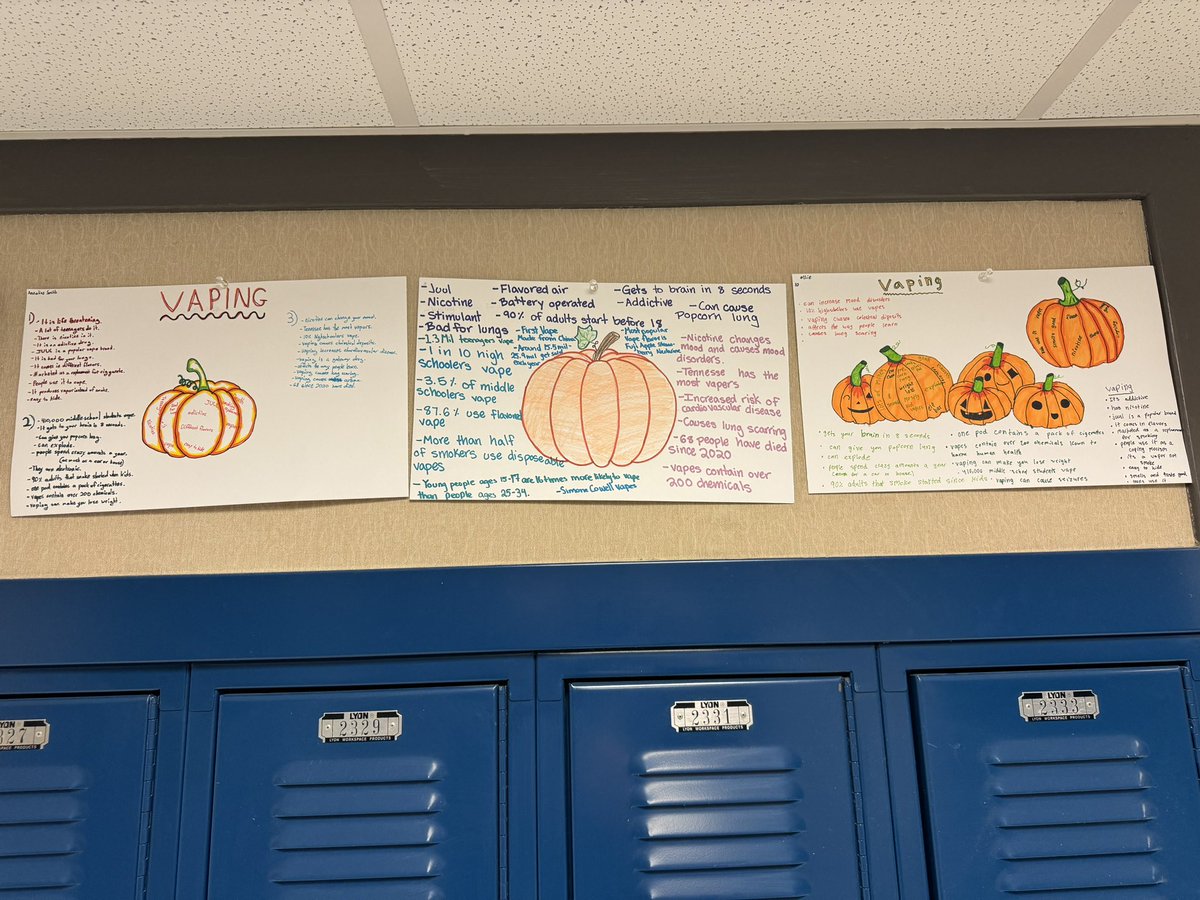 VAPING
1)
- It is life threatening.
- A lot of teenagers do it.
- There is nicotine in it.
- It is an addictive drug.
- JUUL is a popular vape brand.
- It is bad for your lungs.
- It comes in different flavors.
- People use it to cope.
- easy to hide.
addictive
JUUL
Different flavors
2)
- It gets to your brain in 8 seconds.
- Can give you popcorn lung.
- can explode.
- people spend crazy amounts a year.
(as much as a car or house)
- They are electronic.
- 90% adults that smoke started when kids.
- one pod contains a pack of cigarettes.
- vapes contain over 200 chemicals.
- vaping can make you lose weight.
3)
- Nicotine can change your mood.
- Tennessee has the most vapers.
- vaping causes lung scarring.
- 68 since 2020 have died.
- Juul
- Nicotine
- Stimulant
- Bad for lungs
- 1.3 Mil teenagers vape
- 1 in 10 high
schoolers vape
- 3.5% of middle
schoolers vape
- 87.6% use flavored
vape
- More than half
of smokers use disposeable
vapes
- Young people ages 15-17 are 16 times more likely to vape
than people ages 25-34.
- Simon Cowell Vapes
- Flavored air
- Battery operated
- 90% of adults start before 18
- First Vape
Made from China
- Around 15.5 mil -
25.9 mil get sold
each year
- Gets to brain in 8 seconds
- Addictive
- Can cause
Popcorn lung
- Most popular
Vape Flavor is
Fuji Apple Straw-
berry Nectarine
- Nicotine changes
mood and causes mood
disorders.
- Tennessee has the
most vapers
- Increased risk of
cardiovascular disease
- Causes lung scarring
- 68 people have died
since 2020
- vapes contain over
200 chemicals
Ellie
Vaping
- can increase mood disorders
- 10% highschoolers use vapes
- vaping causes celebral deposits
- affects the way people learn
- causes lung scarring
- gets your brain in 8 seconds
- can give you popcorn lung
- can explode
- 90% adults that smoke started since kids
- one pod contains a pack of cigarettes
- vapes contain over 200 chemicals known to
harm human health
- vaping can make you lose weight
- vaping can cause seizures
Vaping
- Its addictive
- has nicotine
- juul is a popular brand
- it comes in flavors
- marketed as a replacement
for smoking
- people use it as a
coping mecism
- its a vapor not
smoke
- easy to hide
327
LYON
2329
LYON WORKSPACE PRODUCTS
LYON
2331
LYON WORKSPACE PRODUCTS
LYON
2333
LYON WORKSPACE PRODUCTS